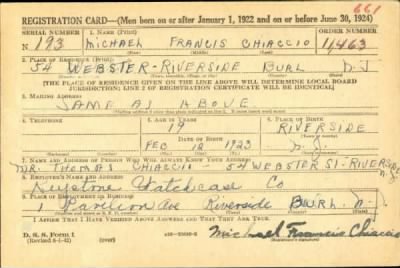 661
REGISTRATION CARD—(Men born on or after January 1, 1922 and on or before June 30, 1924)
SERIAL NUMBER 1. NAME (Print) ORDER NUMBER
N 193 MICHAEL FRANCIS CHIACCIO 11463
2. PLACE OF RESIDENCE (Print)
54 WEBSTER - RIVERSIDE BURL N.J
[THE PLACE OF RESIDENCE GIVEN ON THE LINE ABOVE WILL DETERMINE LOCAL BOARD
JURISDICTION; LINE 2 OF REGISTRATION CERTIFICATE WILL BE IDENTICAL]
3. MAILING ADDRESS
SAME AS ABOVE
4. TELEPHONE 5. AGE IN YEARS 6. PLACE OF BIRTH
19 RIVERSIDE
DATE OF BIRTH
FEB 12 1923 N.J.
7. NAME AND ADDRESS OF PERSON WHO WILL ALWAYS KNOW YOUR ADDRESS
MR. THOMAS CHIACCIO - 54 WEBSTER ST - RIVERSIDE
N.J.
8. EMPLOYER'S NAME AND ADDRESS
Keystone Watchcase Co
9. PLACE OF EMPLOYMENT OR BUSINESS
1 Pavilion Ave Riverside Burl N.J
I AFFIRM THAT I HAVE VERIFIED ABOVE ANSWERS AND THAT THEY ARE TRUE.
D. S. S. Form 1
Michael Francis Chiaccio